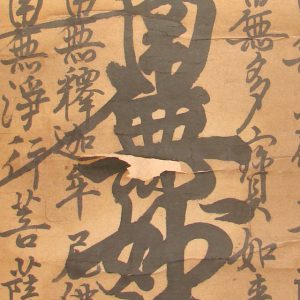 無多寳如来
南無妙
南無釋迦牟尼佛
南無淨行菩薩